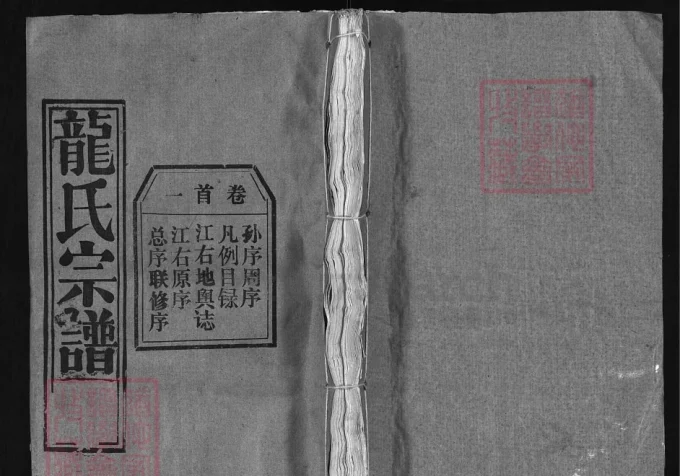 龍氏宗譜
卷首一
孙序周序
凡例目録
江右地輿誌
江右原序
总序联修序